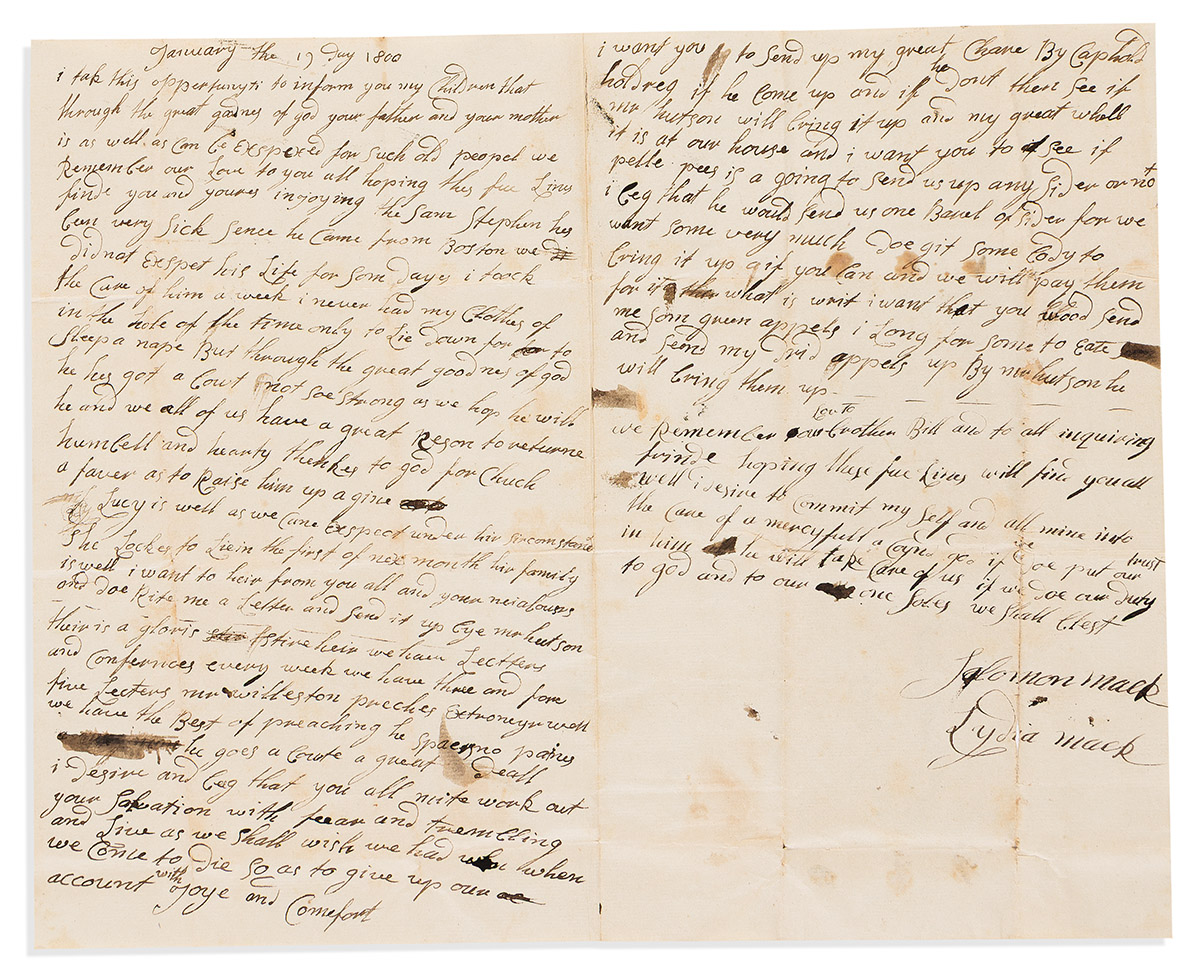 January the 19 Day 1800
i tak this opportunyti to inform you my Children that
through the great gadnes of god your father and your mother
is as well as can be Exspexed for such old peopel we
Remember our Love to you all hoping thes fue Lines
finde you and yours injoying the Sam Stephen hes
ben very Sick Sence he Came from Boston we
did not Exspet his Life for Som Dayes i toock
the Care of him a week i never had my Clothes of
in the hole of the time only to Lie down for to
Sleep a nape But through the great goodnes of god
he hes got a Bowt not soe strong as we hop he will
he and we all of us have a great Reson to returne
humbell and hearty thenkes to god for Chuch
a faver as to Raise him up a gine
Lucy is well as we Cane Exspect under hir sircomstand
She Lockes to Liein the first of nex month hir family
is well i want to heir from you all and your neiabours
and doe Rite me a Letter and Send it up bye mr hutson
their is a gloris Stire heir we have Lectters
and Confernces every week we have three and fore
five Lecters mr willeston preches Extroneyr well
we have the Best of preaching he Spaerno paines
he goes a Boute a great Deall
i desire and beg that you all mite work out
your Salvation with fear and trembling
and Live as we shall wish we had when
we Come to Die So as to give up our
account with Joye and Comefort
i want you to Send up my great Chare By Cap
holdreg if he Come up and if he Dont then See if
mr hutson will bring it up and my great whell
it is at our house and i want you to See if
pelle pees is a going to Send us up any Sider or not
i beg that he would Send us one Barel of Sider for we
want some very much Doe git Some body to
bring it up if you Can and we will pay them
for it what is writ i want that you wood Send
me som green appels i Long for some to Eate
and Send my Drid appels up By mr hutson he
will bring them up
we Remember our Lov to brother Bill and to all inquiring
frinde hoping these fue Lines will find you all
well i desire to Commit my Self and all mine into
the Care of a mercyfull a god if we doe put our trust
in him he will take Care of us if we doe our duty
to god and to our one Soles we shall blest
Solomon mack
Lydia mack